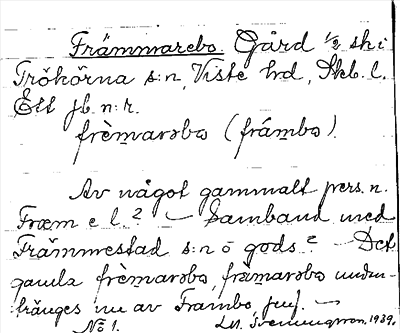 Främmarebo. Gård 1/2 sk i
Trökörna s:n, Viste hd, Skb. l.
Ett jb. n:r.
frèmarəbo (frámbo).
Av något gammalt pers. n.
Fræm e l.? — Samband med
Främmestad s:n o gods? — Det
gamla frèmarəbo, främarəbo undan-
tränges nu av Frambo,
No 1. 1939.